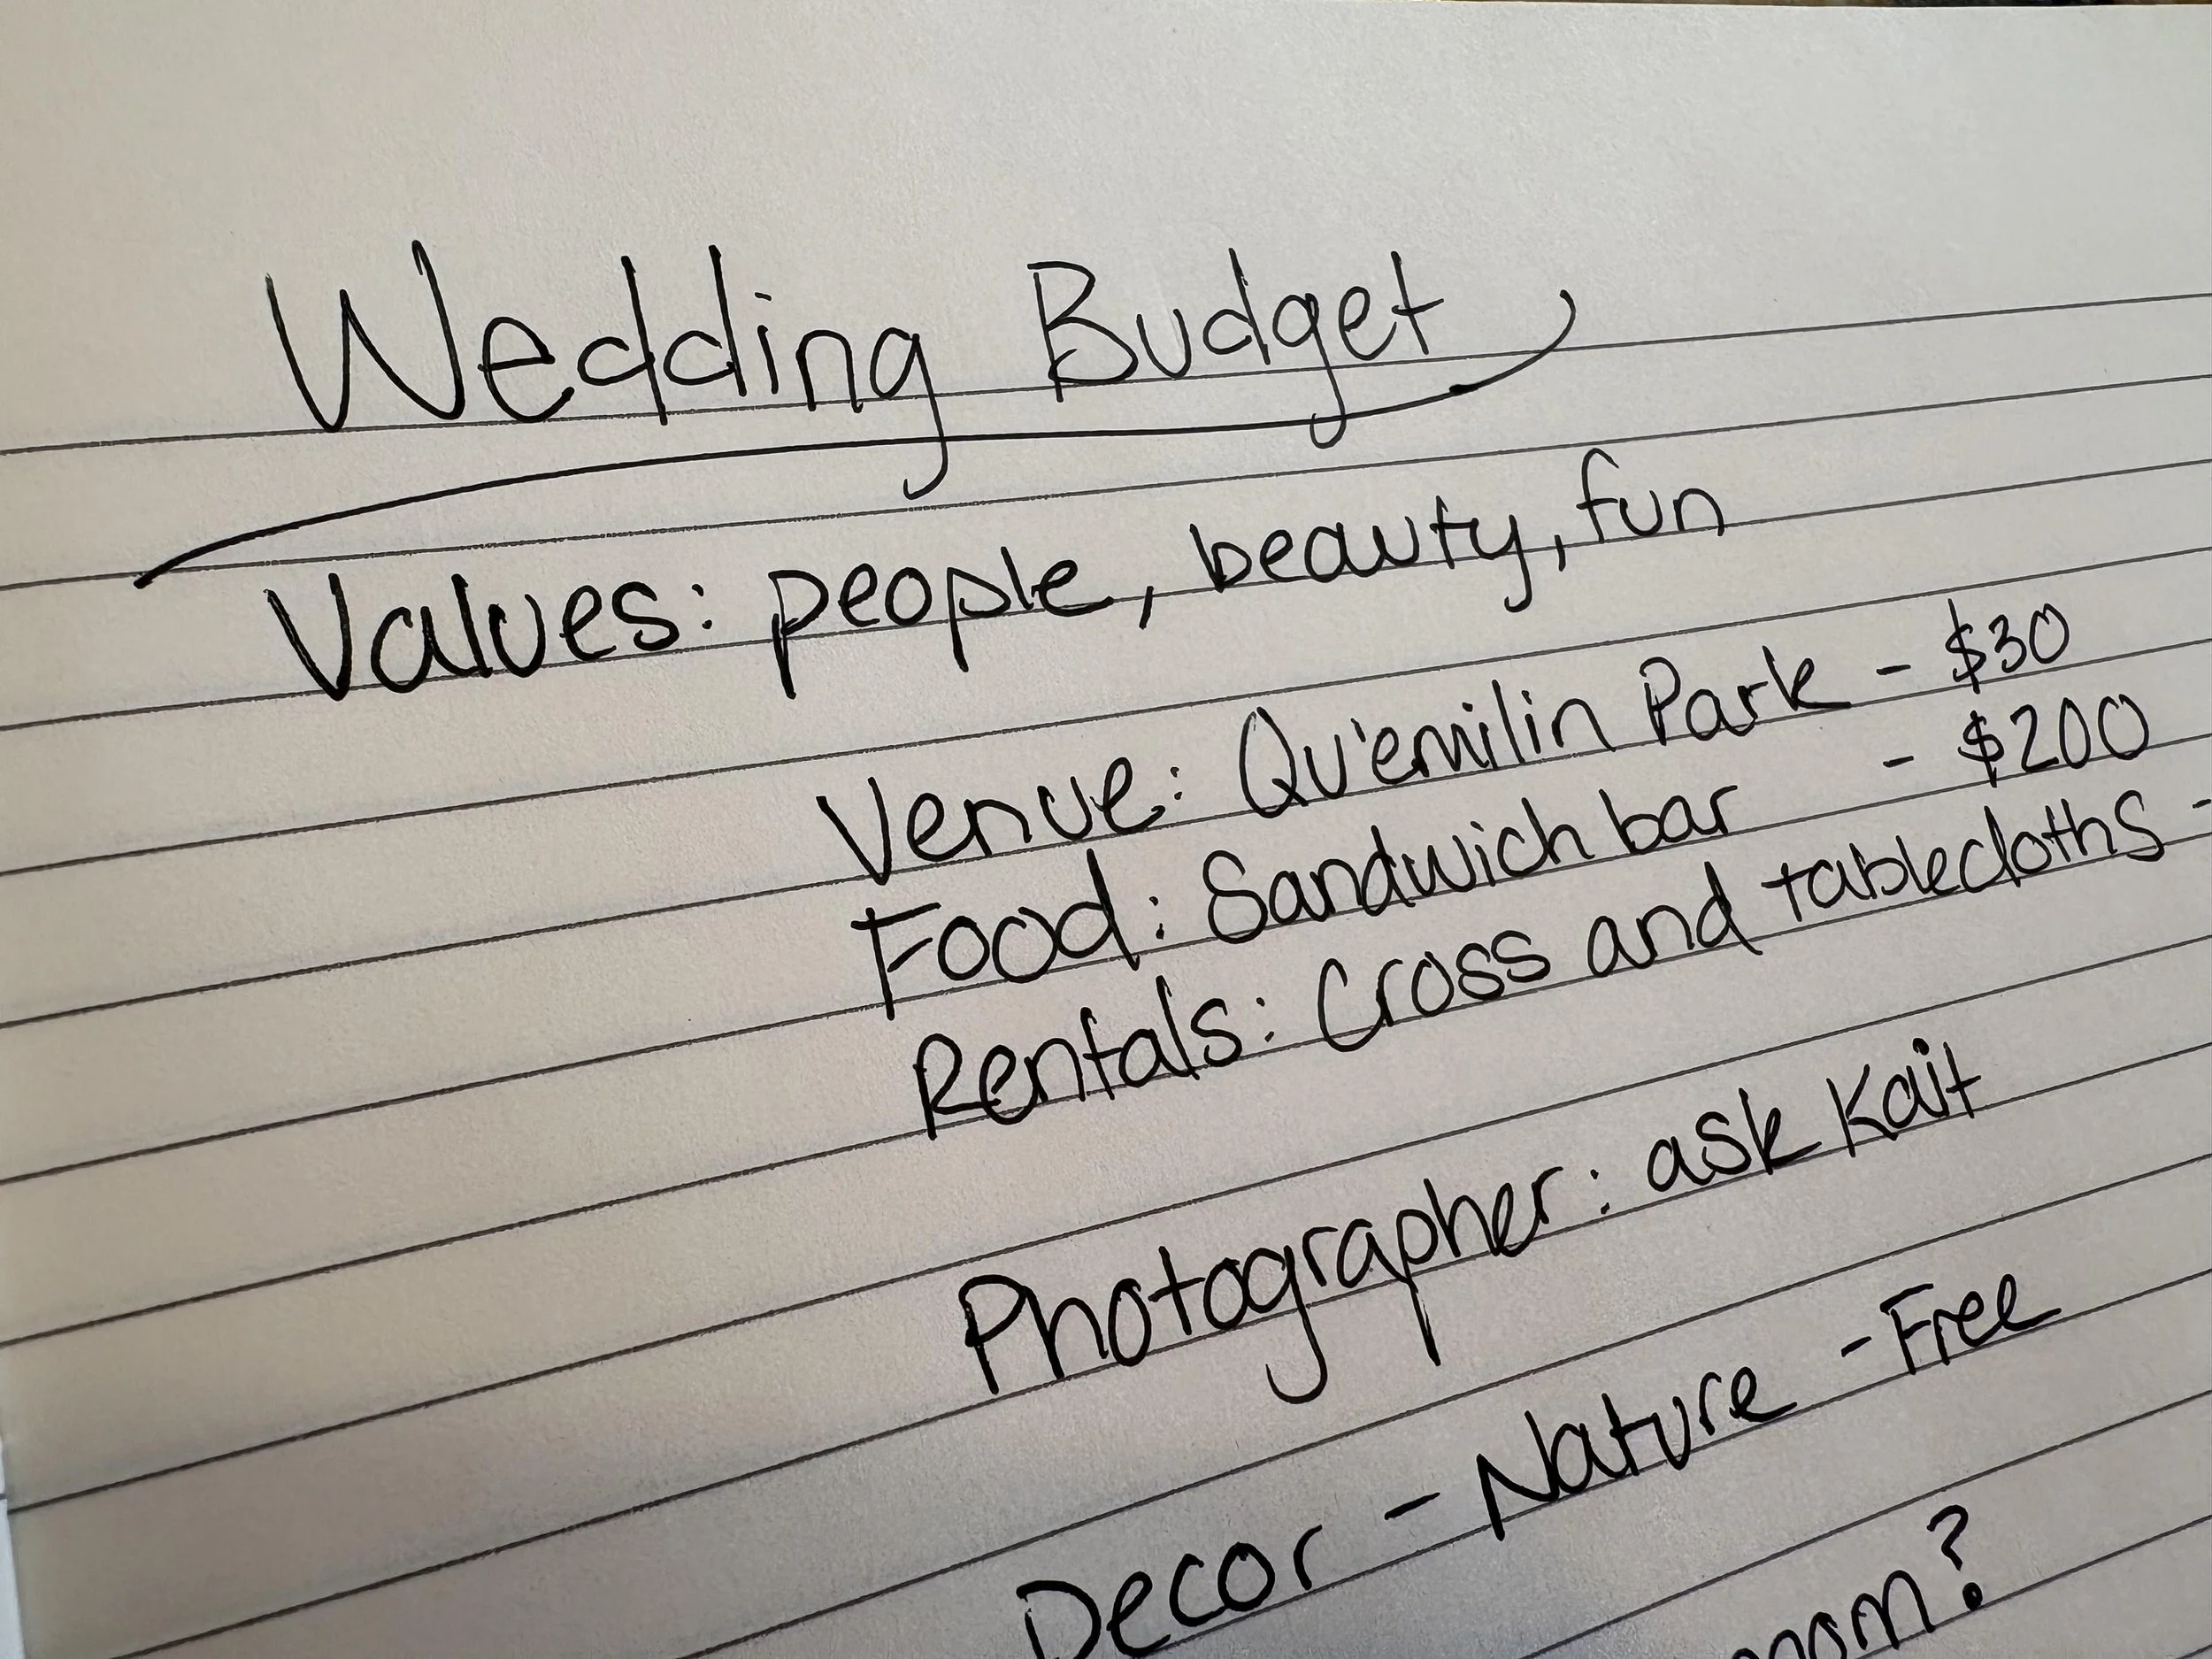 Wedding Budget
Values: people, beauty, fun
Venue: Qu'emilin Park - $30
Food: Sandwich bar - $200
Rentals: Cross and tablecloths -
Photographer: ask Kait
Decor - Nature - Free
mom?